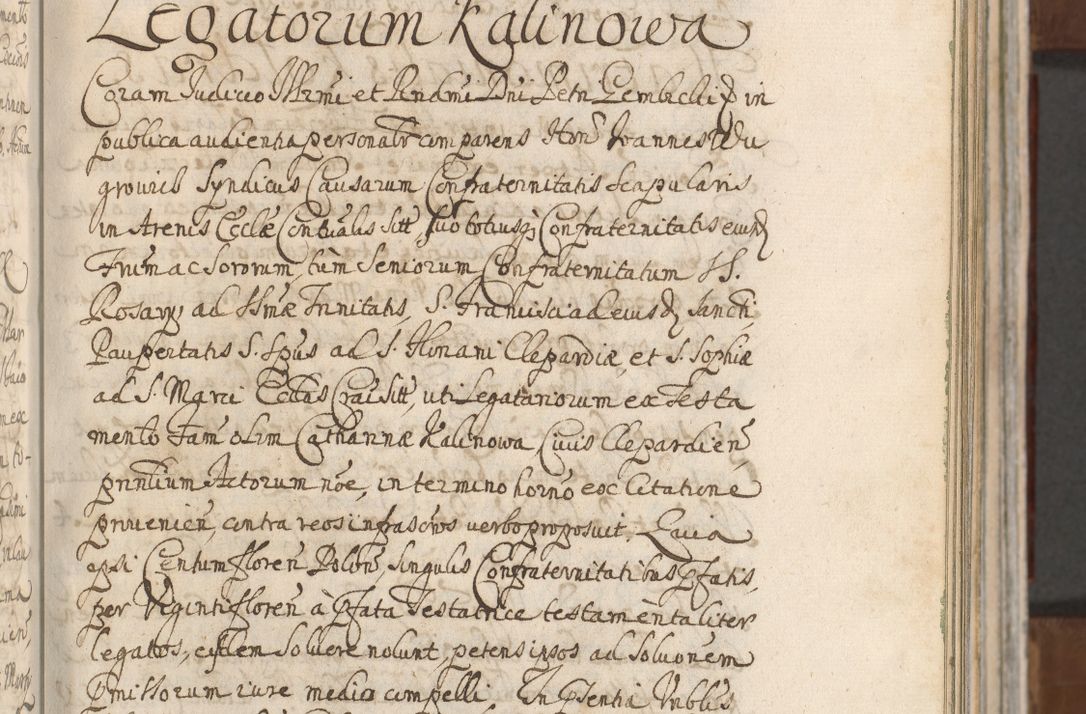 Legatorum Kalinowa
Coram Judicio Illrmi et Rndmi Dni Petri Gembicki Ep in
publica audientia personalr comparens Hons Joannes Wdu
growicz Syndicus Causarum Confraternitatis Scapularis
in Arenis Ecclæ Contualis sitt, suo totiusq Confraternitatis eiusd
Frum ac Sororum, tùm Seniorum Confraternitatum SS.
Rosary ad SSmæ Trinitatis, S. Francisci ad eiusd Sancti,
Paupertatis S. Spus ad S. Floriani Clepardiæ, et S. Sophiæ
ad S. Marci Ecclas Crac sitt, uti Legatariorum ex Testa
mento Fam olim Catharinæ Kalinowa, Civis Clepardien,
prinlium Actorum nõe, in termino horno ex Citatione
provenien, contra reos infrascros verbo proposuit. Quia
ipsi Centum floren Polon, singulis Confraternitatibus pfatis,
per Viginti floren à pfata Testatrice testamentaliter
legatos, eisdem solvere nolunt, petens ipsos ad solvonem
pmissorum iure medio compelli. In psentia Vrblis